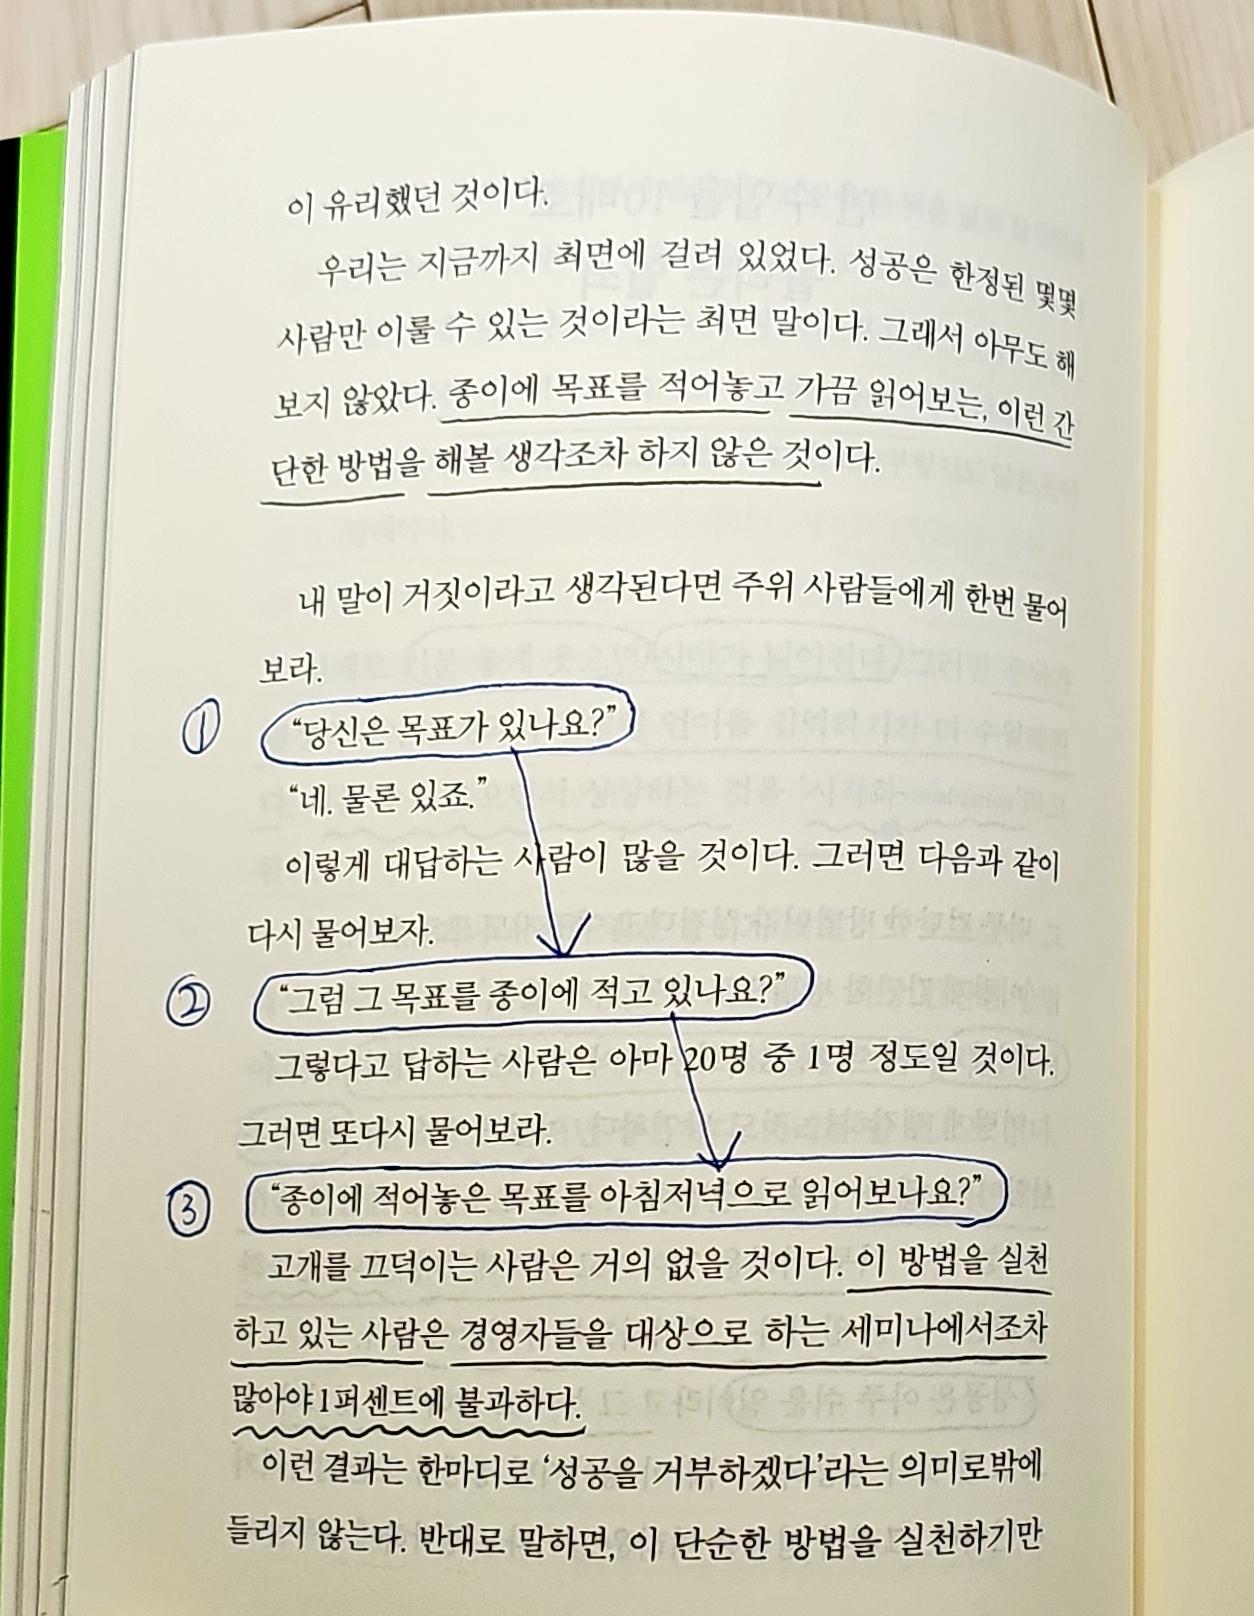 이 유리했던 것이다.
우리는 지금까지 최면에 걸려 있었다. 성공은 한정된 몇몇
사람만 이룰 수 있는 것이라는 최면 말이다. 그래서 아무도 해
보지 않았다. 종이에 목표를 적어놓고 가끔 읽어보는, 이런 간
단한 방법을 해볼 생각조차 하지 않은 것이다.
내 말이 거짓이라고 생각된다면 주위 사람들에게 한번 물어
보라.
① “당신은 목표가 있나요?”
“네. 물론 있죠.”
이렇게 대답하는 사람이 많을 것이다. 그러면 다음과 같이
다시 물어보자.
② “그럼 그 목표를 종이에 적고 있나요?”
그렇다고 답하는 사람은 아마 20명 중 1명 정도일 것이다.
그러면 또다시 물어보라.
③ “종이에 적어놓은 목표를 아침저녁으로 읽어보나요?”
고개를 끄덕이는 사람은 거의 없을 것이다. 이 방법을 실천
하고 있는 사람은 경영자들을 대상으로 하는 세미나에서조차
많아야 1퍼센트에 불과하다.
이런 결과는 한마디로 ‘성공을 거부하겠다’라는 의미로밖에
들리지 않는다. 반대로 말하면, 이 단순한 방법을 실천하기만